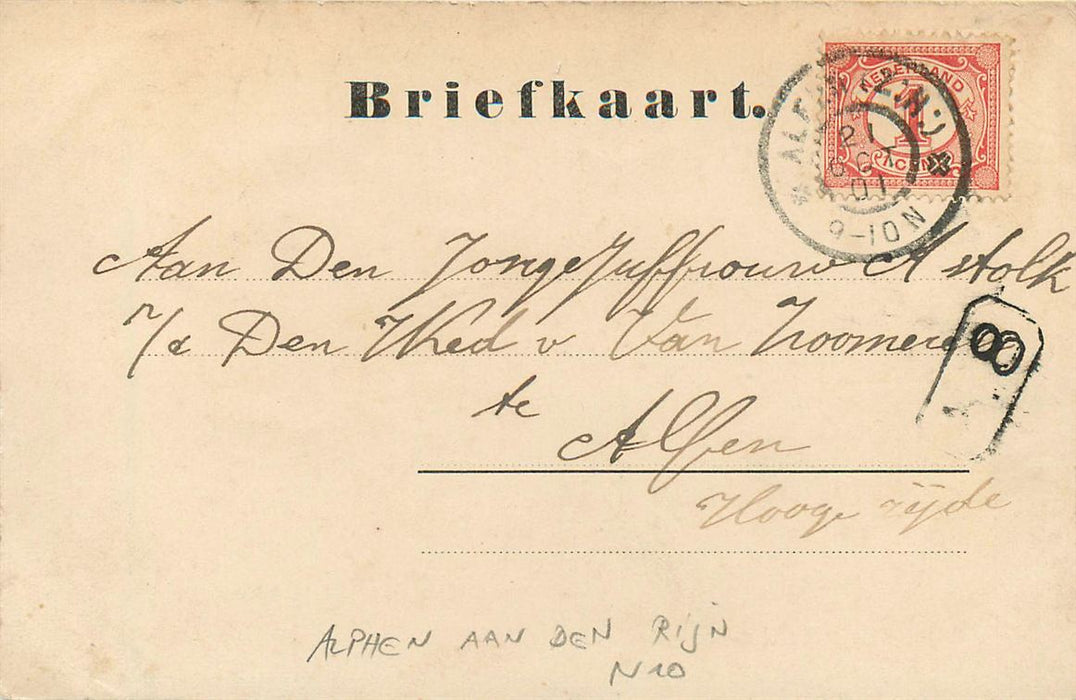 Briefkaart.
NEDERLAND
1
CENT
ALFEN (Z:H:)
21
01
9-10N
Aan Den Jongejuffrouw A stolk
Den Wed v Van
8
te
Alfen
Hooge zijde
ALPHEN AAN DEN RIJN
N20